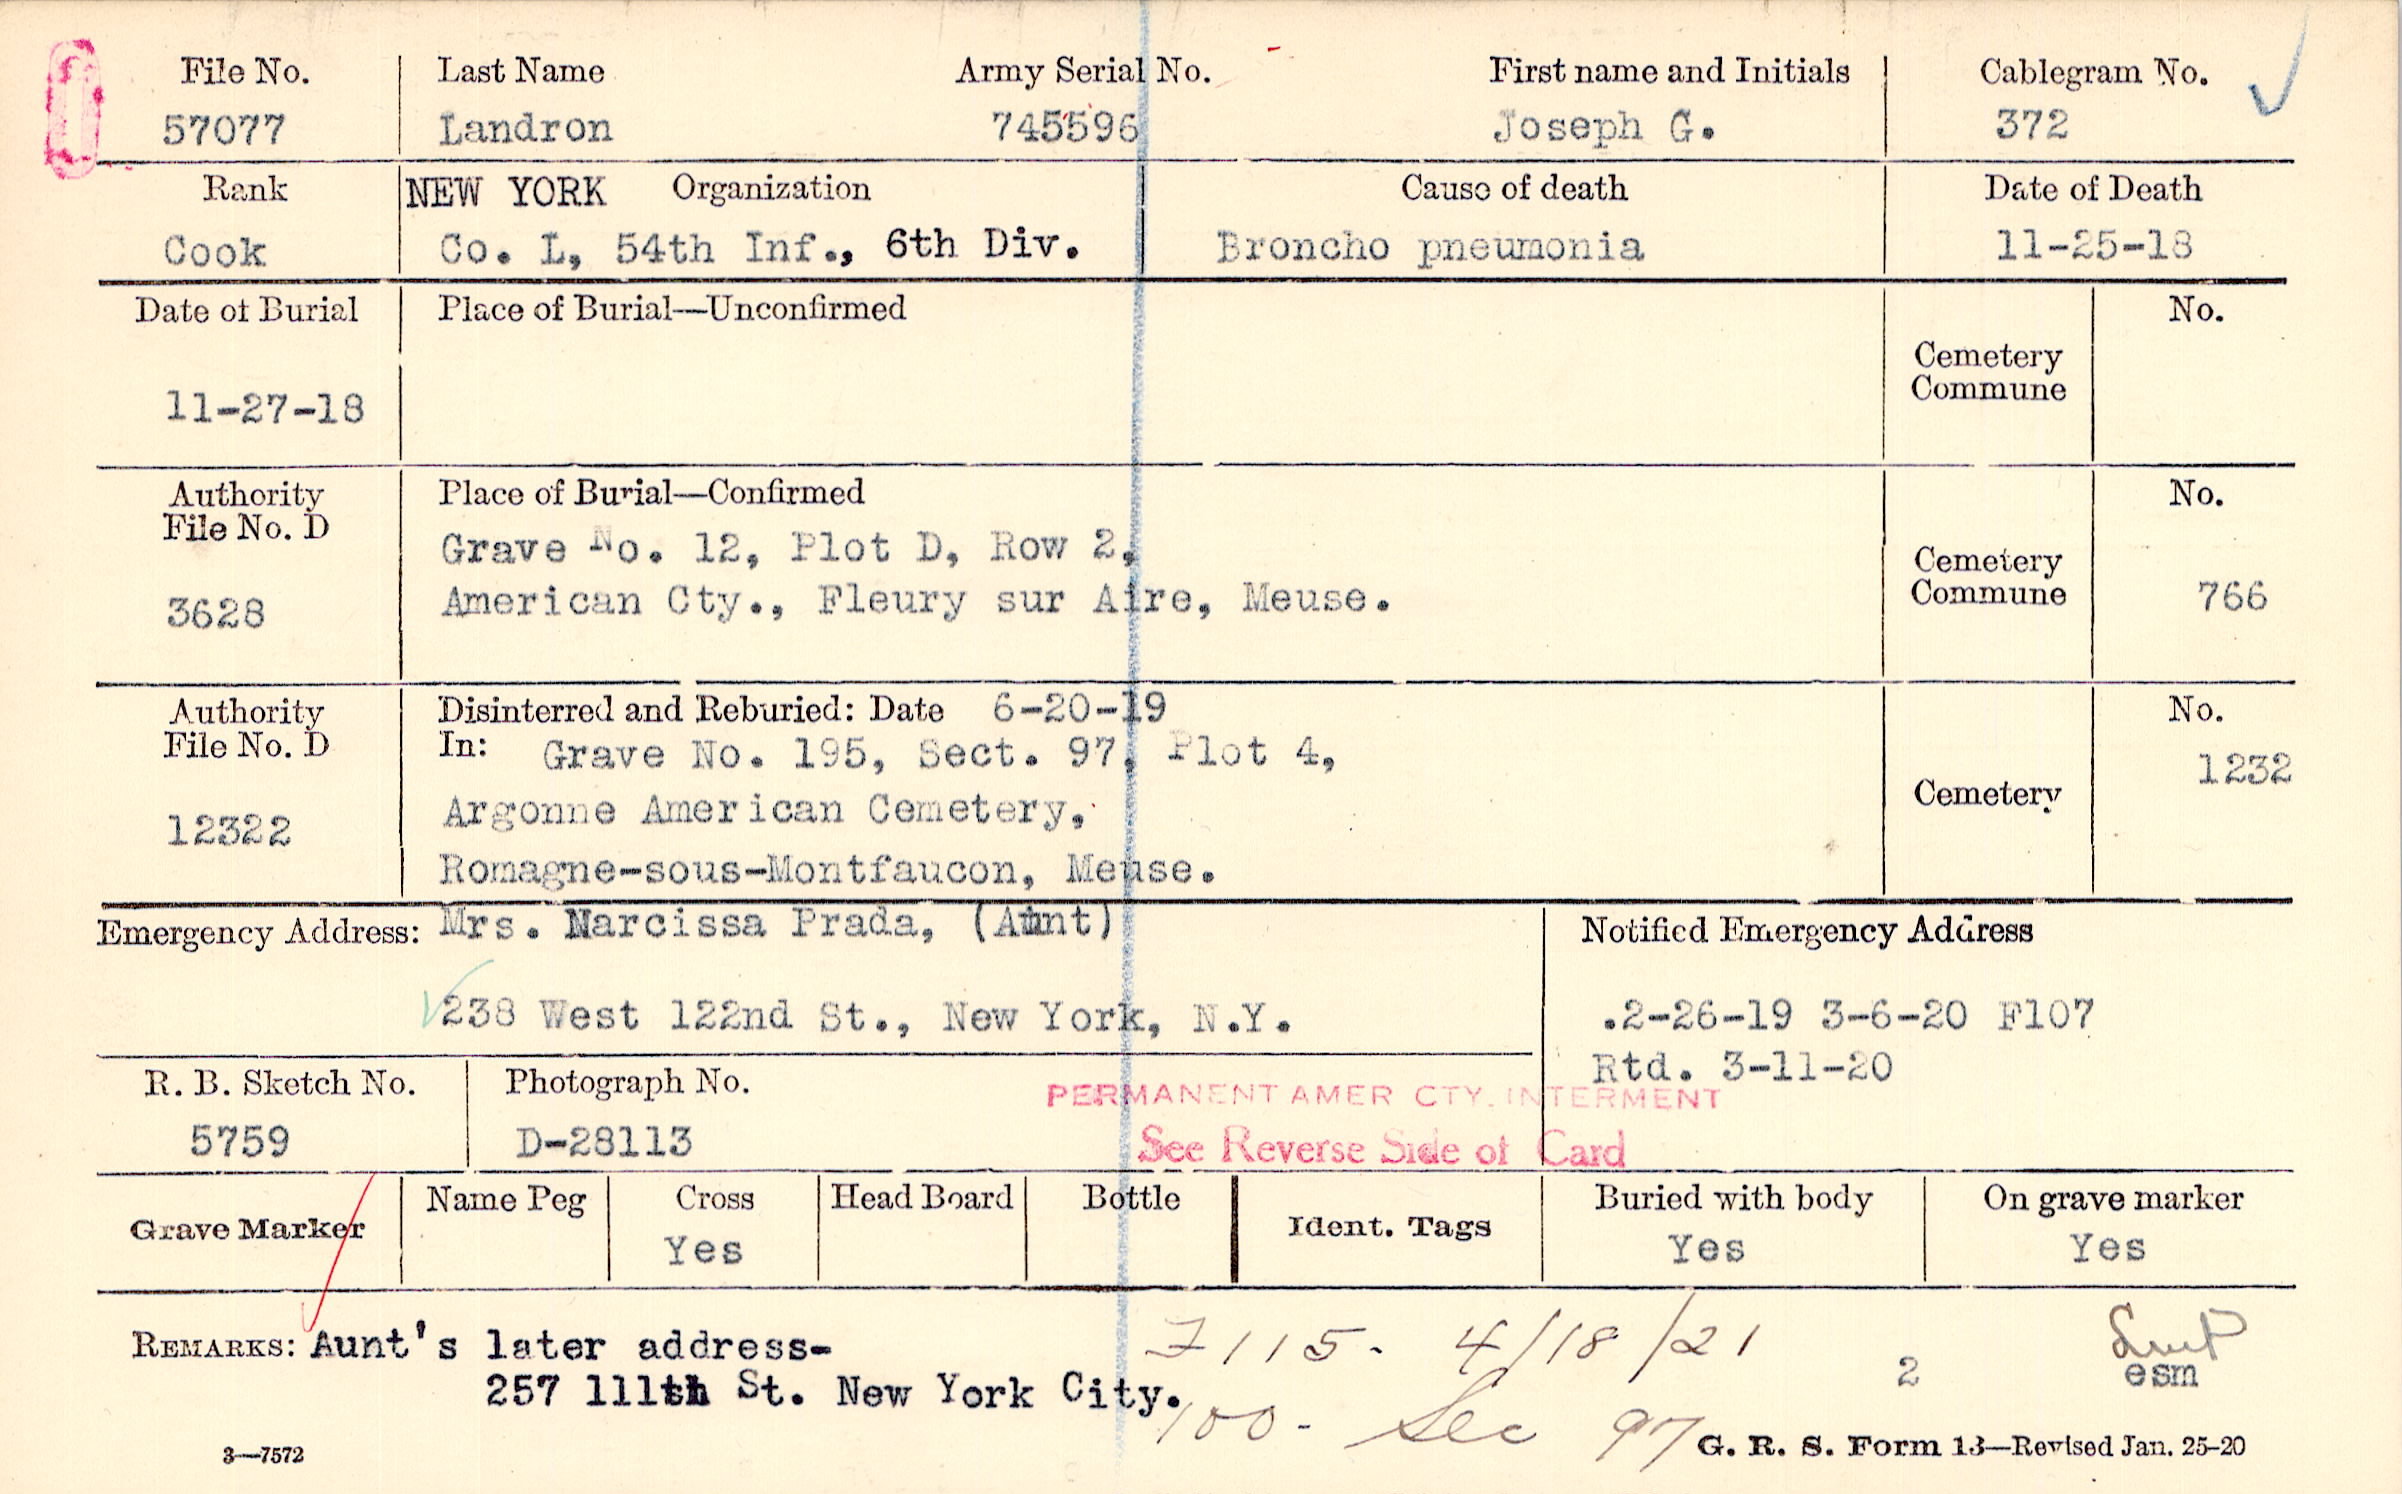 File No. Last Name Army Serial No. First name and Initials Cablegram No.
57077 Landron 745596 Joseph G. 372
Rank NEW YORK Organization Cause of death Date of Death
Cook Co. L, 54th Inf., 6th Div. Broncho pneumonia 11-25-18
Date of Burial Place of Burial—Unconfirmed No.
Cemetery
Commune
11-27-18
Authority Place of Burial—Confirmed No.
File No. D
Grave No. 12, Plot D, Row 2,
Cemetery
American Cty., Fleury sur Aire, Meuse. Commune 766
3628
Authority Disinterred and Reburied: Date 6-20-19 No.
File No. D In: Grave No. 195, Sect. 97, Plot 4, 1232
Argonne American Cemetery, Cemetery
12322
Romagne-sous-Montfaucon, Meuse.
Emergency Address: Mrs. Narcissa Prada, (Aunt) Notified Emergency Address
238 West 122nd St., New York, N.Y. .2-26-19 3-6-20 F107
Rtd. 3-11-20
R. B. Sketch No. Photograph No. PERMANENT AMER CTY. INTERMENT
5759 D-28113 See Reverse Side of Card
Grave Marker Name Peg Cross Head Board Bottle Ident. Tags Buried with body On grave marker
Yes Yes Yes
REMARKS: Aunt's later address- 115. 4/18/21
2 esm
257 111th St. New York City.
100- Sec 97
3—7572 G. R. S. Form 13—Revised Jan. 25-20